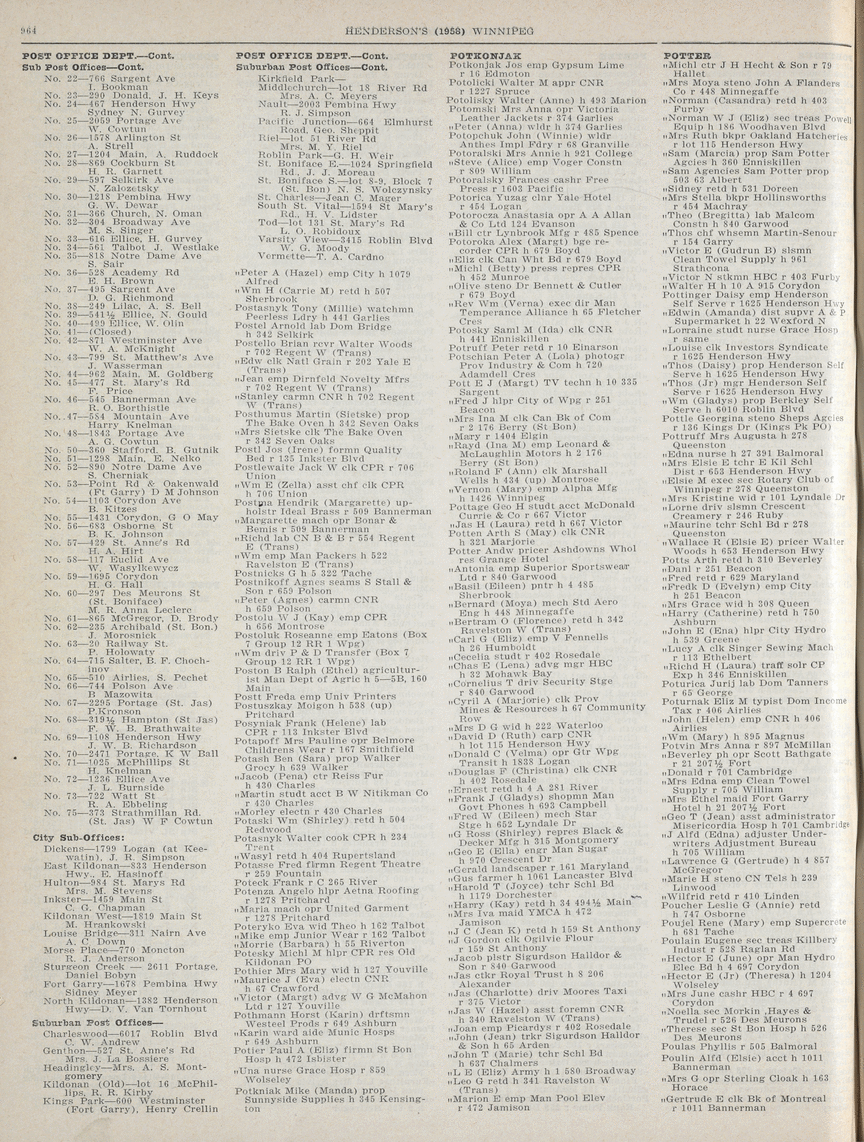 964
HENDERSON'S (1958) WINNIPEG
POST OFFICE DEPT.—Cont.
Sub Post Offices—Cont.
No. 22—766 Sargent Ave
I. Bookman
No. 23—290 Donald, J. H. Keys
No. 24—467 Henderson Hwy
Sydney N. Gurvey
No. 25—2059 Portage Ave
W. Cowtun
No. 26—1578 Arlington St
A. Strell
No. 27—1204 Main, A. Ruddock
No. 28—869 Cockburn St
H. R. Garnett
No. 29—597 Selkirk Ave
N. Zalozetsky
No. 30—1218 Pembina Hwy
G. W. Dowar
No. 31—366 Church, N. Oman
No. 32—304 Broadway Ave
M. S. Singer
No. 33—616 Ellice, H. Gurvey
No. 34—561 Talbot J. Westlake
No. 35—818 Notre Dame Ave
S. Sair
No. 36—528 Academy Rd
E. H. Brown
No. 37—495 Sargent Ave
D. G. Richmond
No. 38—249 Lilac, A. S. Bell
No. 39—541½ Ellice, N. Gould
No. 40—499 Ellice, W. Olin
No. 41—(Closed)
No. 42—871 Westminster Ave
W. A. McKnight
No. 43—799 St. Matthew's Ave
J. Wasserman
No. 44—962 Main, M. Goldberg
No. 45—477 St. Mary's Rd
F. Price
No. 46—545 Bannerman Ave
R. O. Borthistle
No. 47—584 Mountain Ave
Harry Knelman
No. 48—1843 Portage Ave
A. G. Cowtun
No. 50—360 Stafford, B. Gutnik
No. 51—1298 Main, E. Nelko
No. 52—890 Notre Dame Ave
S. Cherniak
No. 53—Point Rd & Oakenwald
(Ft Garry) D M Johnson
No. 54—1103 Corydon Ave
B. Kitzes
No. 55—1431 Corydon, G O May
No. 56—683 Osborne St
B. K. Johnson
No. 57—429 St. Anne's Rd
H. A. Hirt
No. 58—117 Euclid Ave
W. Wasylkewycz
No. 59—1695 Corydon
H. G. Hall
No. 60—297 Des Meurons St
(St. Boniface)
M. R. Anna Leclerc
No. 61—865 McGregor, D. Brody
No. 62—235 Archibald (St. Bon.)
J. Morosnick
No. 63—20 Railway St.
P. Holowaty
No. 64—715 Salter, B. F. Choch-
inov
No. 65—510 Airlies, S. Pechet
No. 66—744 Polson Ave
B Mazowita
No. 67—2295 Portage (St. Jas)
P.Kronson
No. 68—319½ Hampton (St Jas)
F. W. B. Brathwaite
No. 69—1108 Henderson Hwy
J. W. B. Richardson
No. 70—2471 Portage, K W Ball
No. 71—1025 McPhillips St
H. Knelman
No. 72—1236 Ellice Ave
J. L. Burnside
No. 73—722 Watt St
R. A. Ebbeling
No. 75—373 Strathmillan Rd.
(St. Jas) W F Cowtun
City Sub-Offices:
Dickens—1799 Logan (at Kee-
watin), J. R. Simpson
East Kildonan—833 Henderson
Hwy., E. Hasinoff
Hulton—984 St. Marys Rd
Mrs. M. Stevens
Inkster—1459 Main St
C. G. Chapman
Kildonan West—1819 Main St
M. Hrankowski
Louise Bridge—311 Nairn Ave
A. C Down
Morse Place—770 Moncton
R. J. Anderson
Sturgeon Creek — 2611 Portage,
Daniel Bobyn
Fort Garry—1678 Pembina Hwy
Sidney Meyer
North Kildonan—1382 Henderson
Hwy—D. V. Van Tornhout
Suburban Post Offices—
Charleswood—6017 Roblin Blvd
C. W. Andrew
Genthon—527 St. Anne's Rd
Mrs. J. La Bossiere
Headingley—Mrs. A. S. Mont-
gomery
Kildonan (Old)—lot 16 McPhil-
lips, R. R. Kirby
Kings Park—600 Westminster
(Fort Garry), Henry Crellin
POST OFFICE DEPT.—Cont.
Suburban Post Offices—Cont.
Kirkfield Park—
Middlechurch—lot 18 River Rd
Mrs. A. C. Meyers
Nault—2003 Pembina Hwy
R. J. Simpson
Pacific Junction—664 Elmhurst
Road, Geo. Sheppit
Riel—lot 51 River Rd
Mrs. M. Y. Riel
Roblin Park—G. H. Weir
St. Boniface E.—1024 Springfield
Rd., J. J. Moreau
St. Boniface S.—lot 8-9, Block 7
(St. Bon) N. S. Wolczynsky
St. Charles—Jean C. Mager
South St. Vital—1594 St Mary's
Rd., H. V. Lidster
Tod—lot 131 St. Mary's Rd
L. O. Robidoux
Varsity View—3415 Roblin Blvd
W. G. Moody
Vermette—T. A. Cardno
„Peter A (Hazel) emp City h 1079
Alfred
„Wm H (Carrie M) retd h 507
Sherbrook
Postasnyk Tony (Millie) watchmn
Peerless Ldry h 441 Garlies
Postel Arnold lab Dom Bridge
h 342 Selkirk
Postello Brian revr Walter Woods
r 702 Regent W (Trans)
„Edw clk Natl Grain r 202 Yale E
(Trans)
„Jean emp Dirnfeld Novelty Mfrs
r 702 Regent W (Trans)
„Stanley carmn CNR h 702 Regent
W (Trans)
Posthumus Martin (Sietske) prop
The Bake Oven h 342 Seven Oaks
„Mrs Sietske clk The Bake Oven
r 342 Seven Oaks
Postl Jos (Irene) formn Quality
Bed r 135 Inkster Blvd
Postlewaite Jack W clk CPR r 706
Union
„Wm E (Zella) asst chf clk CPR
h 706 Union
Postma Hendrik (Margarette) up-
holstr Ideal Brass r 509 Bannerman
„Margarette mach opr Bonar &
Bemis r 509 Bannerman
„Richd lab CN B & B r 554 Regent
E (Trans)
„Wm emp Man Packers h 522
Ravelston E (Trans)
Postnicks G h 5 322 Tache
Postnikoff Agnes seams S Stall &
Son r 659 Polson
„Peter (Agnes) carmn CNR
h 659 Polson
Postolu W J (Kay) emp CPR
h 656 Montrose
Postoluk Roseanne emp Eatons (Box
7 Group 12 RR 1 Wpg)
„Wm driv P & D Transfer (Box 7
Group 12 RR 1 Wpg)
Poston B Ralph (Ethel) agricultur-
ist Man Dept of Agric h 5—5B, 160
Main
Postt Freda emp Univ Printers
Postuszkay Moigon h 538 (up)
Pritchard
Posyniak Frank (Helene) lab
CPR r 113 Inkster Blvd
Potapoff Mrs Pauline opr Belmore
Childrens Wear r 167 Smithfield
Potash Ben (Sara) prop Walker
Grocy h 639 Walker
„Jacob (Pena) ctr Reiss Fur
h 430 Charles
„Martin studt acct B W Nitikman Co
r 430 Charles
„Morley electn r 430 Charles
Potaski Wm (Shirley) retd h 504
Redwood
Potasnyk Walter cook CPR h 234
Trent
„Wasyl retd h 404 Rupertsland
Potasse Fred firmn Regent Theatre
r 259 Fountain
Poteck Frank r C 265 River
Potenza Angelo hlpr Aetna Roofing
r 1278 Pritchard
„Maria mach opr United Garment
r 1278 Pritchard
Poteryko Eva wid Theo h 162 Talbot
„Mike emp Junior Wear r 162 Talbot
„Morrie (Barbara) h 55 Riverton
Potesky Michl M hlpr CPR res Old
Kildonan PO
Pothier Mrs Mary wid h 127 Youville
„Maurice J (Eva) electn CNR
h 67 Crawford
„Victor (Margt) advg W G McMahon
Ltd r 127 Youville
Pothmann Horst (Karin) drftsmn
Westeel Prods r 649 Ashburn
„Karin ward aide Munic Hosps
r 649 Ashburn
Potier Paul A (Eliz) firmn St Bon
Hosp h 472 Isbister
„Una nurse Grace Hosp r 859
Wolseley
Potkniak Mike (Manda) prop
Sunnyside Supplies h 345 Kensing-
ton
POTKONJAK
Potkonjak Jos emp Gypsum Lime
r 16 Edmoton
Potolicki Walter M appr CNR
r 1227 Spruce
Potolisky Walter (Anne) h 493 Marion
Potomski Mrs Anna opr Victoria
Leather Jackets r 374 Garlies
„Peter (Anna) wldr h 374 Garlies
Potopchuk John (Winnie) wldr
Anthes Impl Fdry r 68 Granville
Potoralski Mrs Annie h 921 College
„Steve (Alice) emp Voger Constn
r 809 William
Potoralsky Frances cashr Free
Press r 1603 Pacific
Potorica Yuzag clnr Yale Hotel
r 454 Logan
Potorocza Anastasia opr A A Allan
& Co Ltd 124 Evanson
„Bill ctr Lynbrook Mfg r 485 Spence
Potoroka Alex (Margt) bge re-
corder CPR h 679 Boyd
„Eliz clk Can Wht Bd r 679 Boyd
„Michl (Betty) press repres CPR
h 452 Munroe
„Olive steno Dr Bennett & Cutler
r 679 Boyd
„Rev Wm (Verna) exec dir Man
Temperance Alliance h 65 Fletcher
Cres
Potosky Saml M (Ida) clk CNR
h 441 Enniskillen
Potruff Peter retd r 10 Einarson
Potschian Peter A (Lola) photogr
Prov Industry & Com h 720
Adamdell Cres
Pott E J (Margt) TV techn h 10 335
Sargent
„Fred J hlpr City of Wpg r 251
Beacon
„Mrs Ina M clk Can Bk of Com
r 2 176 Berry (St Bon)
„Mary r 1404 Elgin
„Rayd (Ina M) emp Leonard &
McLaughlin Motors h 2 176
Berry (St Bon)
„Roland F (Ann) clk Marshall
Wells h 434 (up) Montrose
„Vernon (Mary) emp Alpha Mfg
h 1426 Winnipeg
Pottage Geo H studt acct McDonald
Currie & Co r 667 Victor
„Jas H (Laura) retd h 667 Victor
Potten Arth S (May) clk CNR
h 321 Marjorie
Potter Andw pricer Ashdowns Whol
res Grange Hotel
„Antonia emp Superior Sportswear
Ltd r 840 Garwood
„Basil (Eileen) pntr h 4 485
Sherbrook
„Bernard (Moya) mech Std Aero
Eng h 448 Minnegaffe
„Bertram O (Florence) retd h 342
Ravelston W (Trans)
„Carl G (Eliz) emp V Fennells
h 26 Humboldt
„Cecelia studt r 402 Rosedale
„Chas E (Lena) advg mgr HBC
h 32 Mohawk Bay
„Cornelius T driv Security Stge
r 840 Garwood
„Cyril A (Marjorie) clk Prov
Mines & Resources h 67 Community
Row
„Mrs D G wid h 222 Waterloo
„David D (Ruth) carp CNR
h lot 115 Henderson Hwy
„Donald C (Velma) opr Gtr Wpg
Transit h 1838 Logan
„Douglas F (Christina) clk CNR
h 402 Rosedale
„Ernest retd h 4 A 281 River
„Frank J (Gladys) shopmn Man
Govt Phones h 693 Campbell
„Fred W (Eileen) mech Star
Stge h 652 Lyndale Dr
„G Ross (Shirley) repres Black &
Decker Mfg h 315 Montgomery
„Geo E (Ella) engr Man Sugar
h 970 Crescent Dr
„Gerald landscaper r 161 Maryland
„Gus farmer h 1061 Lancaster Blvd
„Harold T (Joyce) tchr Schl Bd
h 1179 Dorchester
„Harry (Kay) retd h 34 494½ Main
„Mrs Iva maid YMCA h 472
Jamison
„J C (Jean K) retd h 159 St Anthony
„J Gordon clk Ogilvie Flour
r 159 St Anthony
„Jacob plstr Sigurdson Halldor &
Son r 840 Garwood
„Jas clkr Royal Trust h 8 206
Alexander
„Jas (Charlotte) driv Moores Taxi
r 375 Victor
„Jas W (Hazel) asst foremn CNR
h 340 Ravelston W (Trans)
„Joan emp Picardys r 402 Rosedale
„John (Jean) trkr Sigurdson Halldor
& Son h 65 Arden
„John T (Marie) tchr Schl Bd
h 637 Chalmers
„L E (Eliz) Army h 1 580 Broadway
„Leo G retd h 341 Ravelston W
(Trans)
„Marion E emp Man Pool Elev
r 472 Jamison
POTTER
„Michl ctr J H Hecht & Son r 79
Hallet
„Mrs Moya steno John A Flanders
Co r 448 Minnegaffe
„Norman (Casandra) retd h 403
Furby
„Norman W J (Eliz) sec treas Powell
Equip h 186 Woodhaven Blvd
„Mrs Ruth bkpr Oakland Hatcheries
r lot 115 Henderson Hwy
„Sam (Marcia) prop Sam Potter
Agcies h 360 Enniskillen
„Sam Agencies Sam Potter prop
503 63 Albert
„Sidney retd h 531 Doreen
„Mrs Stella bkpr Hollinsworths
r 454 Machray
„Theo (Bregitta) lab Malcom
Constn h 840 Garwood
„Thos chf whsemn Martin-Senour
r 154 Garry
„Victor E (Gudrun B) slsmn
Clean Towel Supply h 961
Strathcona
„Victor N stkmn HBC r 403 Furby
„Walter H h 10 A 915 Corydon
Pottinger Daisy emp Henderson
Self Serve r 1625 Henderson Hwy
„Edwin (Amanda) dist supvr A & P
Supermarket h 22 Wexford N
„Lorraine studt nurse Grace Hosp
r same
„Louise clk Investors Syndicate
r 1625 Henderson Hwy
„Thos (Daisy) prop Henderson Self
Serve h 1625 Henderson Hwy
„Thos (Jr) mgr Henderson Self
Serve r 1625 Henderson Hwy
„Wm (Gladys) prop Berkley Self
Serve h 6010 Roblin Blvd
Pottle Georgina steno Sheps Agcies
r 136 Kings Dr (Kings Pk PO)
Pottruff Mrs Augusta h 278
Queenston
„Edna nurse h 27 391 Balmoral
„Mrs Elsie E tchr E Kil Schl
Dist r 653 Henderson Hwy
„Elsie M exec sec Rotary Club of
Winnipeg r 278 Queenston
„Mrs Kristine wid r 101 Lyndale Dr
„Lorne driv slsmn Crescent
Creamery r 246 Ruby
„Maurine tchr Schl Bd r 278
Queenston
„Wallace R (Elsie E) pricer Walter
Woods h 653 Henderson Hwy
Potts Arth retd h 310 Beverley
„Danl r 251 Beacon
„Fred retd r 629 Maryland
„Fredk D (Evelyn) emp City
h 251 Beacon
„Mrs Grace wid h 308 Queen
„Harry (Catherine) retd h 750
Ashburn
„John E (Ena) hlpr City Hydro
h 539 Greene
„Lucy A clk Singer Sewing Mach
r 113 Ethelbert
„Richd H (Laura) traff solr CP
Exp h 346 Enniskillen
Poturica Jurij lab Dom Tanners
r 65 George
Poturnak Eliz M typist Dom Income
Tax r 406 Airlies
„John (Helen) emp CNR h 406
Airlies
„Wm (Mary) h 895 Magnus
Potvin Mrs Anna r 897 McMillan
„Beverley ph opr Scott Bathgate
r 21 207½ Fort
„Donald r 701 Cambridge
„Mrs Edna emp Clean Towel
Supply r 705 William
„Mrs Ethel maid Fort Garry
Hotel h 21 207½ Fort
„Geo T (Jean) asst administrator
Misericordia Hosp h 701 Cambridge
„J Alfd (Edna) adjuster Under-
writers Adjustment Bureau
h 705 William
„Lawrence G (Gertrude) h 4 857
McGregor
„Marie H steno CN Tels h 239
Linwood
„Wilfrid retd r 410 Linden
Poucher Leslie G (Annie) retd
h 747 Osborne
Poujel Rene (Mary) emp Supercrete
h 681 Tache
Poulain Eugene sec treas Killbery
Indust r 528 Raglan Rd
„Hector E (June) opr Man Hydro
Elec Bd h 4 697 Corydon
„Hector E (Jr) (Theresa) h 1204
Wolseley
„Mrs June cashr HBC r 4 697
Corydon
„Noella sec Morkin ,Hayes &
Trudel r 526 Des Meurons
„Therese sec St Bon Hosp h 526
Des Meurons
Poulas Phyllis r 505 Balmoral
Poulin Alfd (Elsie) acct h 1011
Bannerman
„Mrs G opr Sterling Cloak h 163
Horace
„Gertrude E clk Bk of Montreal
r 1011 Bannerman